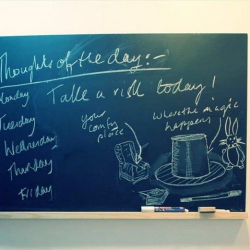 Thoughts of the day:-
Monday
Take a risk today!
Tuesday
Wednesday
Thursday
Friday
your
comfy
place
where the magic
happens